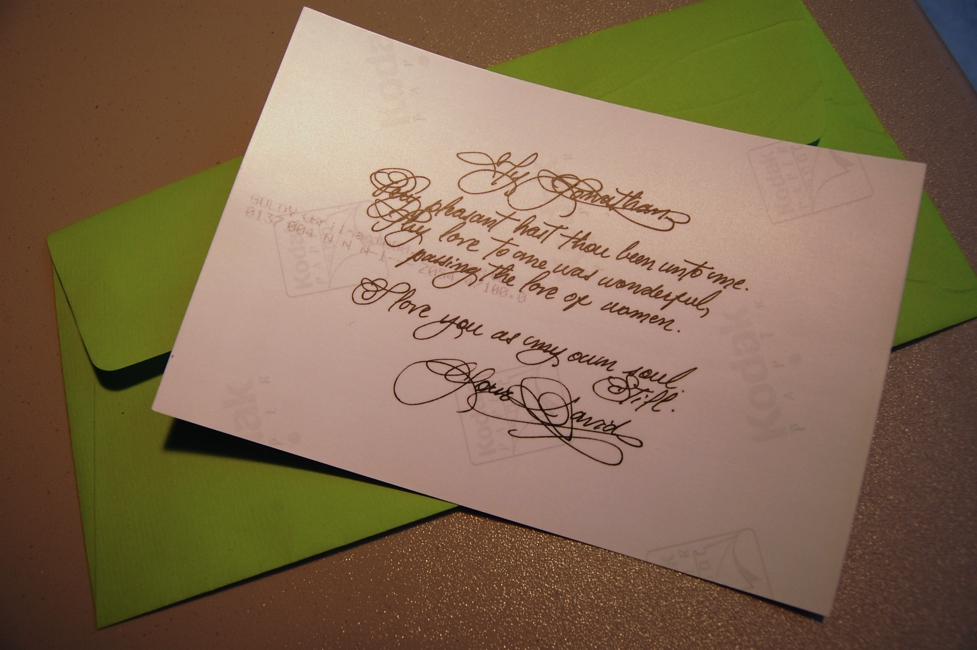 My Jonathan
Very pleasant hast thou been unto me.
Thy love to me was wonderful,
passing the love of women.
I love you as my own soul.
Still.
Yours David
Kodak
0137 004 N N N